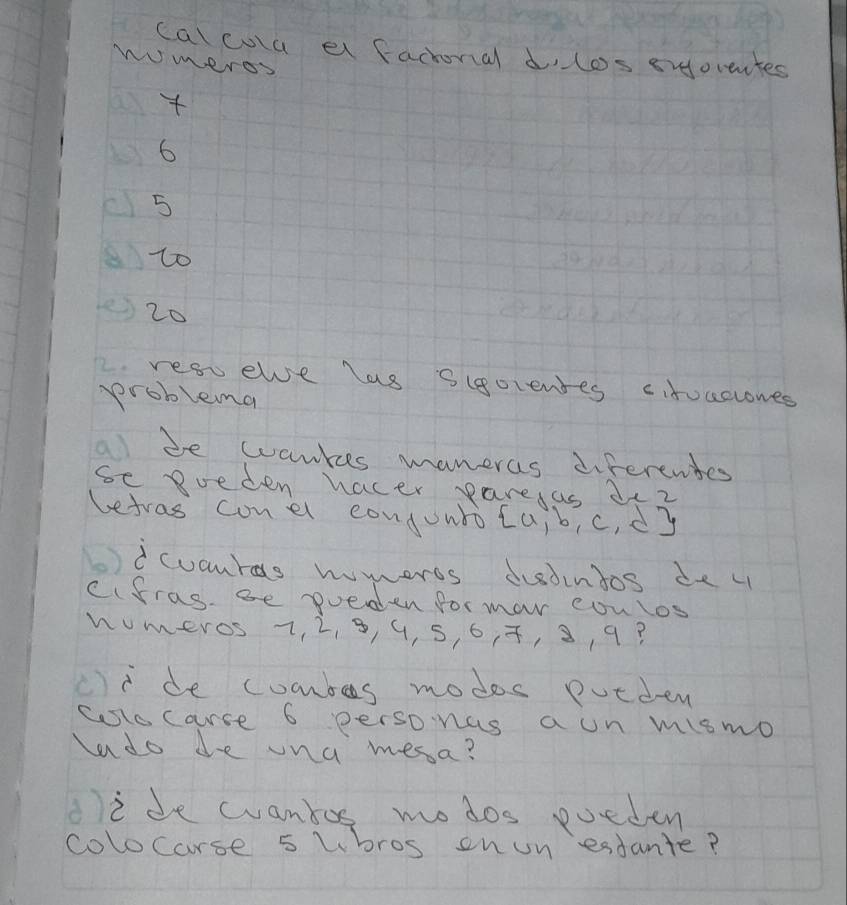 calcula el factorial d. los siguientes
numeros
a) 7
b) 6
c) 5
d) 10
e) 20
2. resuelve las siguientes situaciones
problema
a) de cuantas maneras diferentes
se pueden hacer parejas de 2
letras con el conjunto {a, b, c, d}
b) ¿cuantas numeros distintos de 4
cifras. se pueden formar con los
numeros 1, 2, 3, 4, 5, 6, 7, 8, 9?
c) ¿ de cuantas modos pueden
colocarse 6 personas a un mismo
lado de una mesa?
d) ¿ de cuantos modos pueden
colocarse 5 libros en un estante?